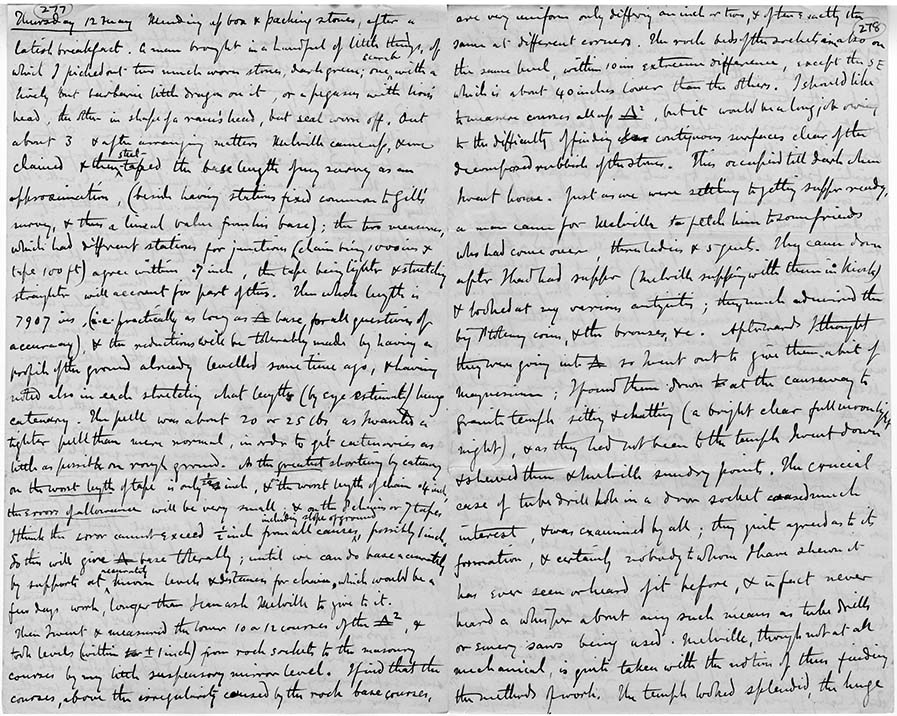 (277)
Thursday 12 May Mending up box & packing stones, after a
latish breakfast. A man brought in a handful of little things, of
which I picked out two much worn stones, dark green; one scarab with a
lively but barbaric little dragon on it, or a pegasus with lion's
head, the other in shape of a ram's head, but seal worn off. Out
about 3 & after arranging matters Melville came up, & we
chained & then steel-taped the base length of my survey as an
approximation, (besides having stations fixed common to Gill's
survey, & thus a lineal value from his base); the two measures,
which had different stations for junctions (chain being 1000 ins &
tape 100 ft) agree within inch, the tape being lighter & stretching
straighter will account for part of this. The whole length is
7907 ins, (i.e. practically as long as Δ base, for all questions of
accuracy), & the reductions will be tolerably made by having a
profile of the ground already levelled some time ago, & having
noted also in each stretching what lengths (by eye estimate) hung in
catenary. The pull was about 20 or 25 lbs as I wanted a
tighter pull than mere normal, in order to get catenaries as
little as possible on rough ground. As the greatest shortening by catenary
on the worst length of tape is only inch, & the worst length of chain .4 inch,
the errors of allowance will be very small, & on the 8 chains or 7 tapes,
I think the error cannot exceed ½ inch from all causes, including slope of ground, possibly 1 inch.
So this will give Δ base tolerably; until we can do base accurately
by supports at accurately known levels & distances for chain, which would be a
few days work, longer than I can ask Melville to give to it.
Then I went & measured the lower 10 or 12 courses of the Δ², &
took levels (within ± 1 inch) from rock sockets to the masonry
courses by my little suspensory mirror level. I find that the
courses, above the irregularity caused by the rock base courses,
(278)
are very uniform only differing an inch or two, & often exactly the
same at different corners. The rock beds of the sockets are also on
the same level, within 10 ins extreme difference, except the SE
which is about 40 inches lower than the others. I should like
to measure courses all up Δ², but it would be a long job owing
to the difficulty of finding contiguous surfaces clear of the
decomposed rubbish of the stones. This occupied till dark when
I went home. Just as we were settling to getting supper ready,
a man came for Melville to fetch him to some friends
who had come over, three ladies & 5 gent. They came down
after I had had supper (Melville supping with them in Kiosk)
& looked at my various antiquities; they much admired the
big Ptolemy coin, & the bronzes, &c. Afterwards I thought
they were going into Δ so I went out to give them a bit of
magnesium; I found them down at the causeway to
granite temple sitting & chatting (a bright clear full moonlight
night), & as they had not been to the temple I went down
& shewed them & Melville sundry points. The crucial
case of tube drill hole in a door socket caused much
interest, & was examined by all; they quite agreed as to its
formation, & certainly nobody to whom I have shewn it
has ever seen or heard of it before, & in fact never
heard a whisper about any such means as tube drills
or emery saws being used. Melville, though not at all
mechanical, is quite taken with the notion of thus finding
the methods of work. The temple looked splendid, the huge